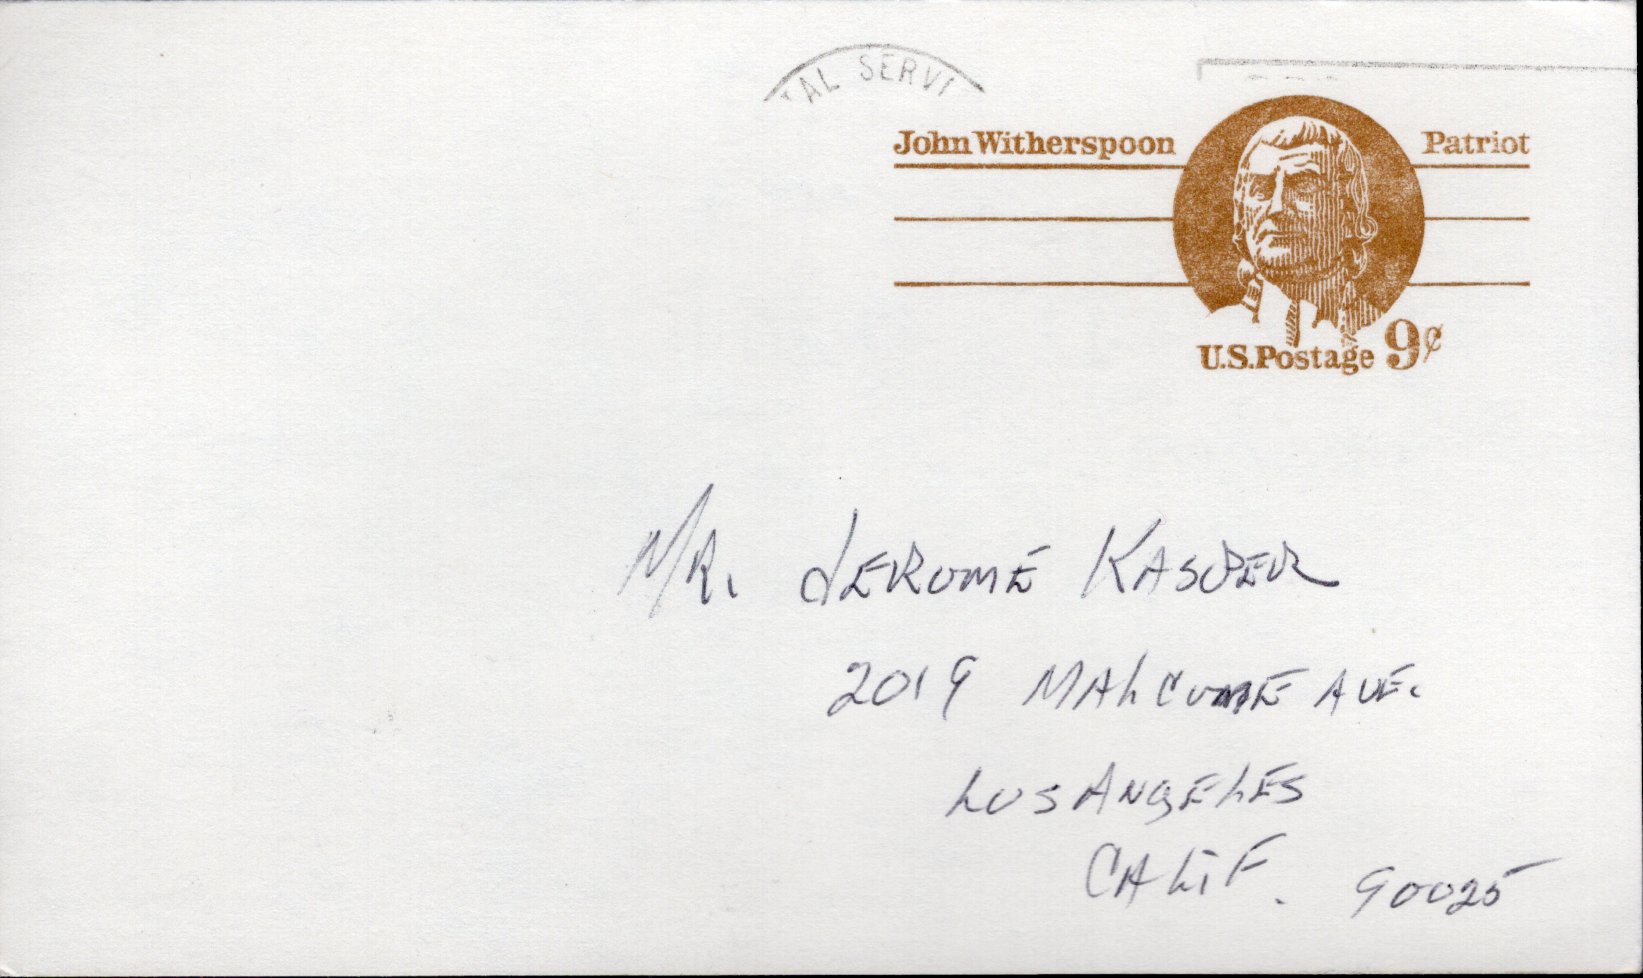 TAL SERVI
John Witherspoon Patriot
U.S.Postage 9¢
MR. JEROME KASPER
2019 MALCOME AVE.
LOS ANGELES
CALIF. 90025